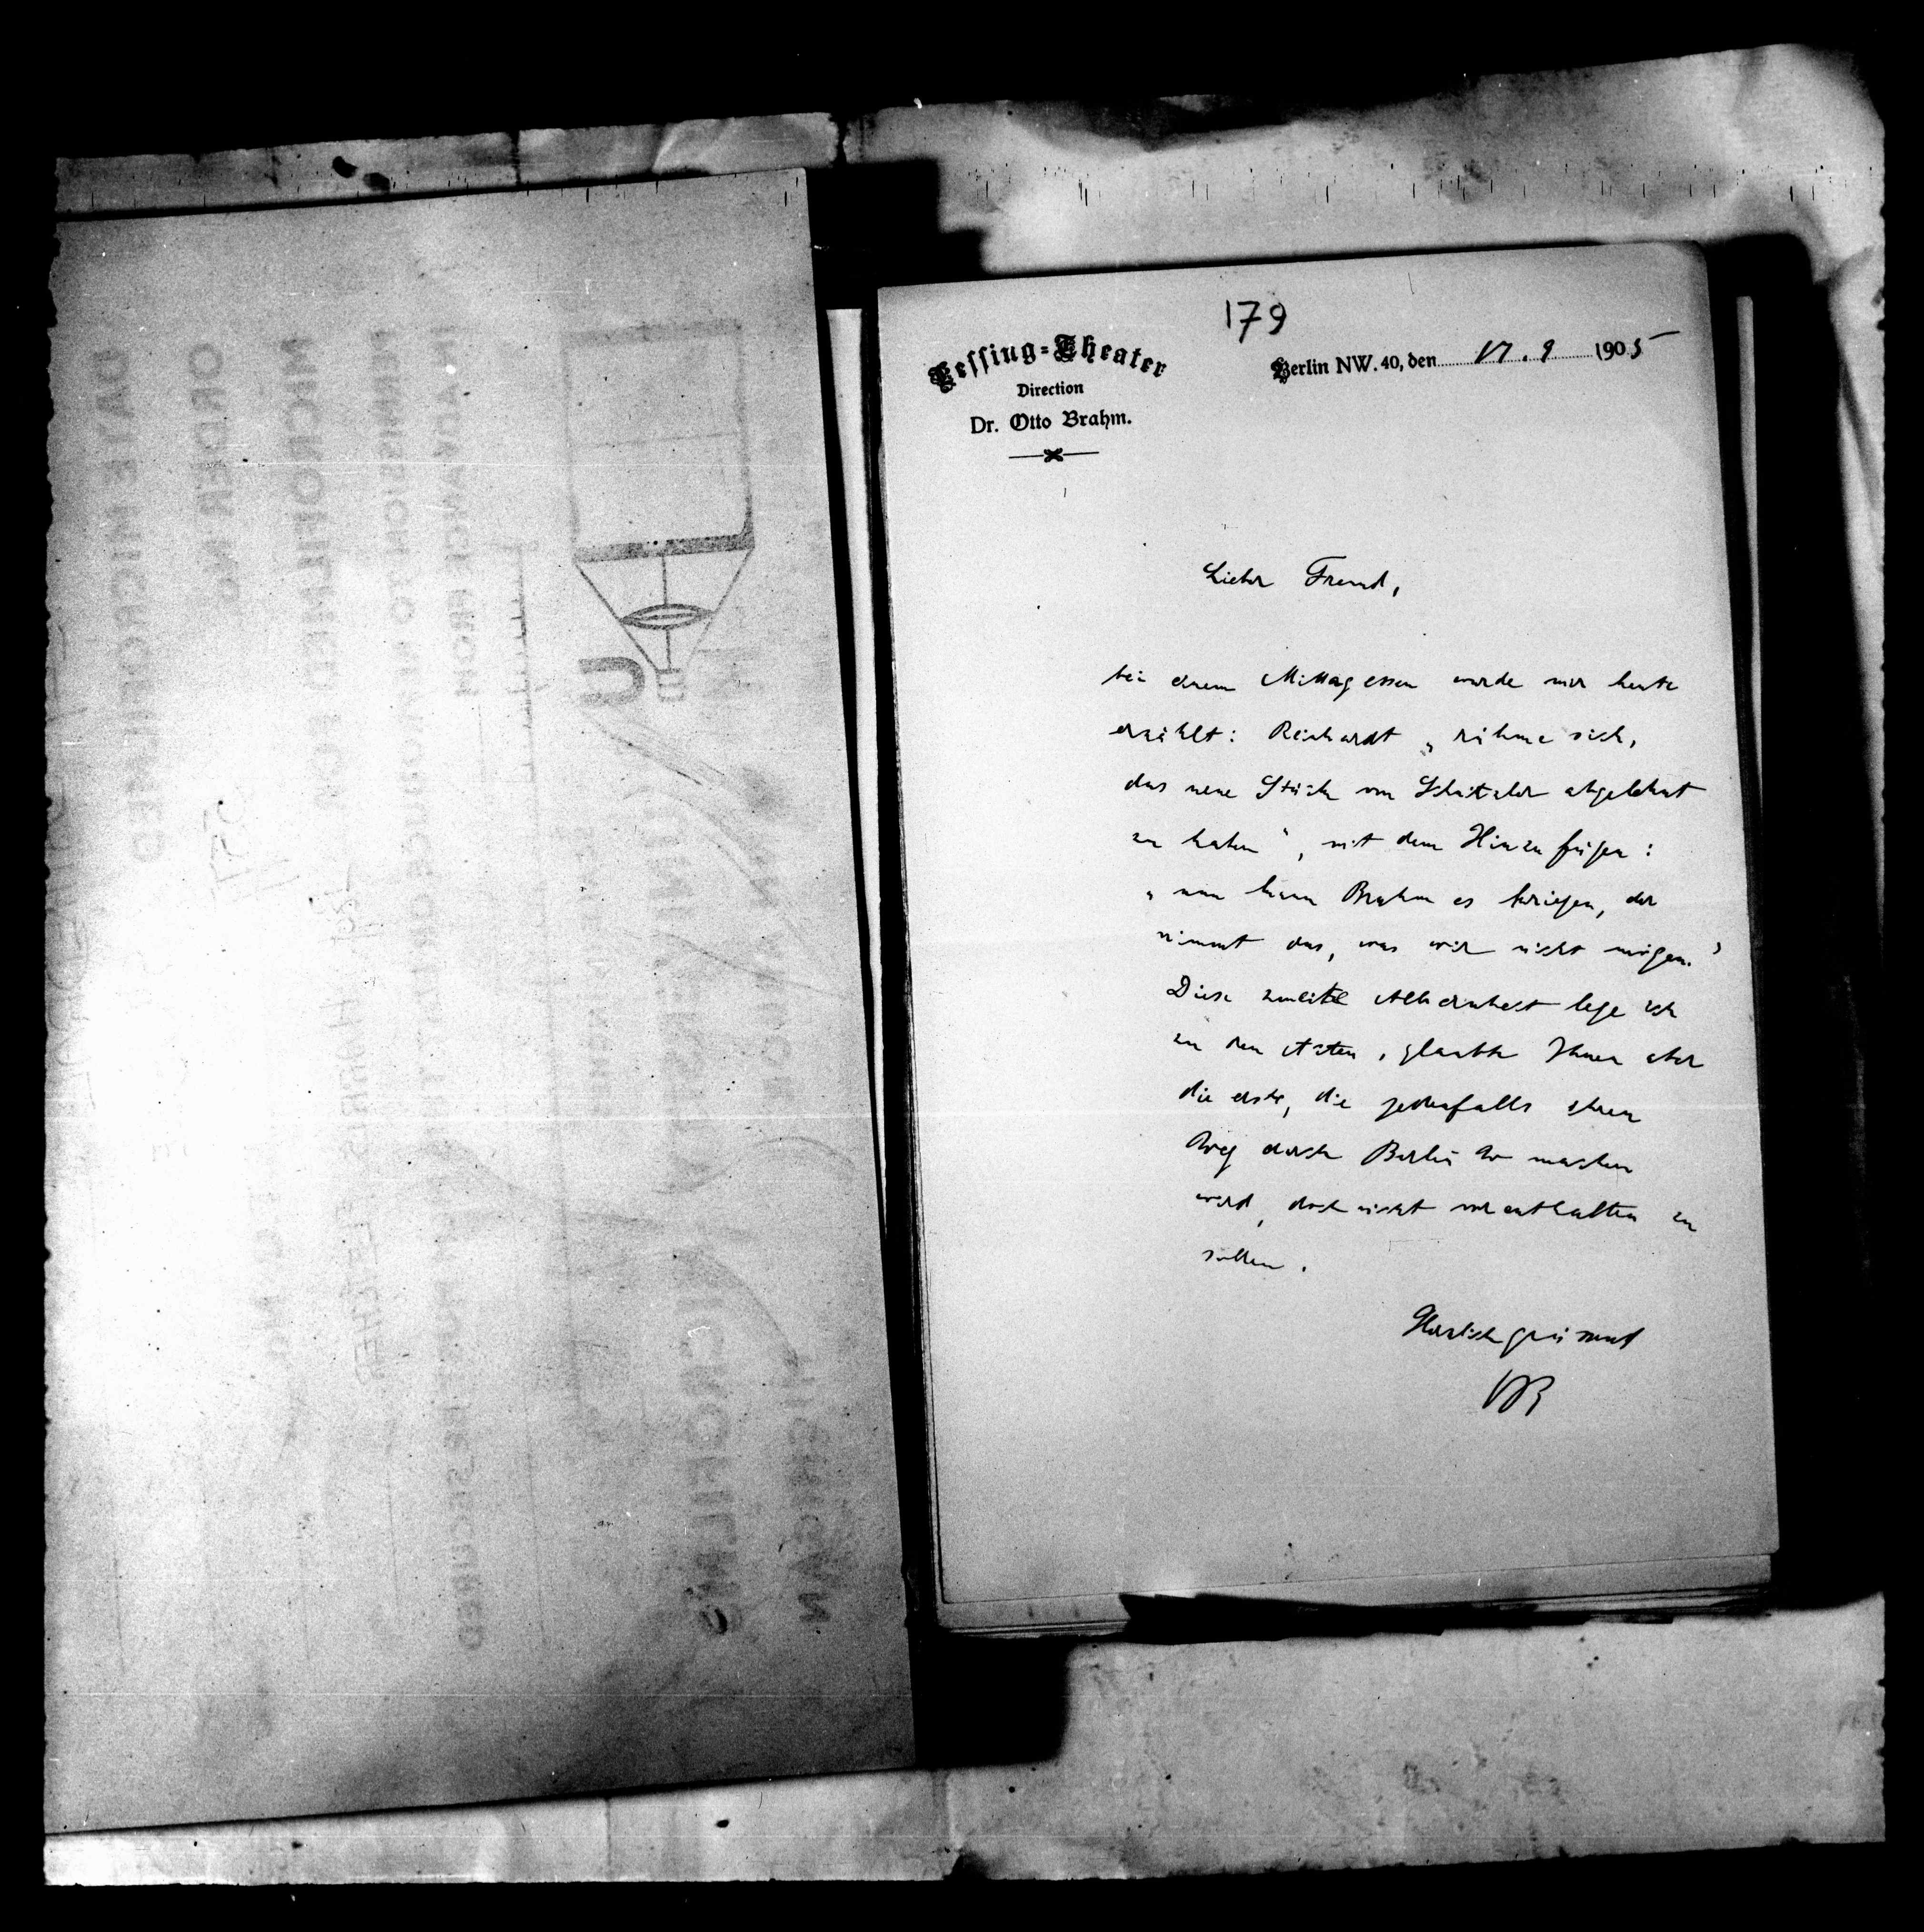 179
Lessing=Theater
Direction
Dr. Otto Brahm.
Berlin NW. 40, den 17. 9 1905
Lieber Freund,
bei einem Mittagessen wurde mir heute
erzählt: Reinhardt „rühme sich,
das neue Stück von Schnitzler abgelehnt
zu haben“, mit dem Hinzufügen:
„nun kann Brahm es kriegen, der
nimmt das, was wir nicht mögen.“
Diese zweite Albernheit lege ich
zu den Akten, glaubte Ihnen aber
die erste, die jedenfalls ihren
Weg durch Berlin W machen
wird, doch nicht vorenthalten zu
sollen.
Herzlich grüssend
OB